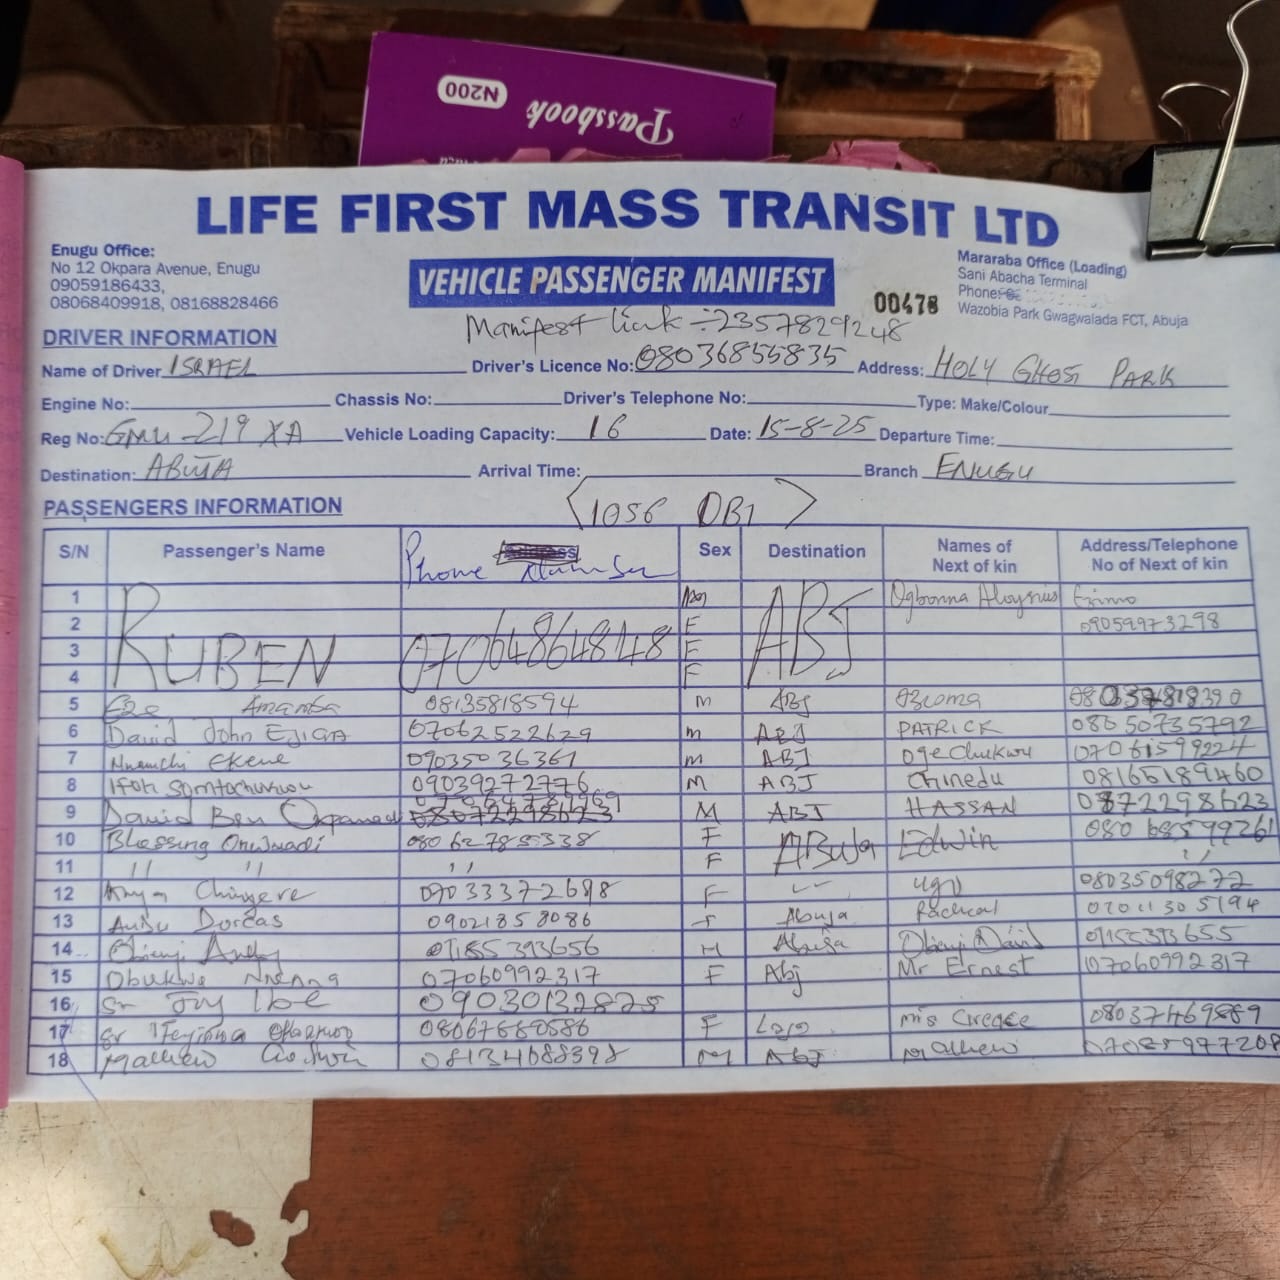 N200
Passbook
LIFE FIRST MASS TRANSIT LTD
Enugu Office:
No 12 Okpara Avenue, Enugu
09059186433,
08068409918, 08168828466
VEHICLE PASSENGER MANIFEST
00478
Mararaba Office (Loading)
Sani Abacha Terminal
Phone:
Wazobia Park Gwagwalada FCT, Abuja
Manifest link :- 2357829248
DRIVER INFORMATION
Name of Driver ISRAEL Driver's Licence No: 08036855835 Address: HOLY GHOST PARK
Engine No: Chassis No: Driver's Telephone No: Type: Make/Colour
Reg No: GMU-219 XA Vehicle Loading Capacity: 16 Date: 15-8-25 Departure Time:
Destination: ABUJA Arrival Time: Branch ENUGU
PASSENGERS INFORMATION
S/N Passenger's Name Phone Number Sex Destination Names of Next of kin Address/Telephone No of Next of kin
1 Ogbonna Aloysius
2 F 09059973298
3 RUBEN 07064864848 F ABJ
4 F
5 Eze 08135818594 M ABJ
6 David John EJIGA 07062522629 M ABJ PATRICK 08650735792
7 Ekene 09035036361 M ABJ Ogechukwu 07061599224
8 09039272776 M ABJ Chinedu 08165189460
9 David Ben M ABJ HASSAN
10 Blessing 08062785338 F Abuja Edwin
11 " " " F "
12 Chinyere 07033372698 F 08035098272
13 Dorcas 09021858086 F Abuja Racheal 07011305194
14 Andy 07155393656 M Abuja David 07155393655
15 Nnenna 07060992317 F Abj Mr Ernest 07060992317
16 Sr Joy Ibe 09030132825
17 Sr F 08037469889
18 Mathew M ABJ Mathew